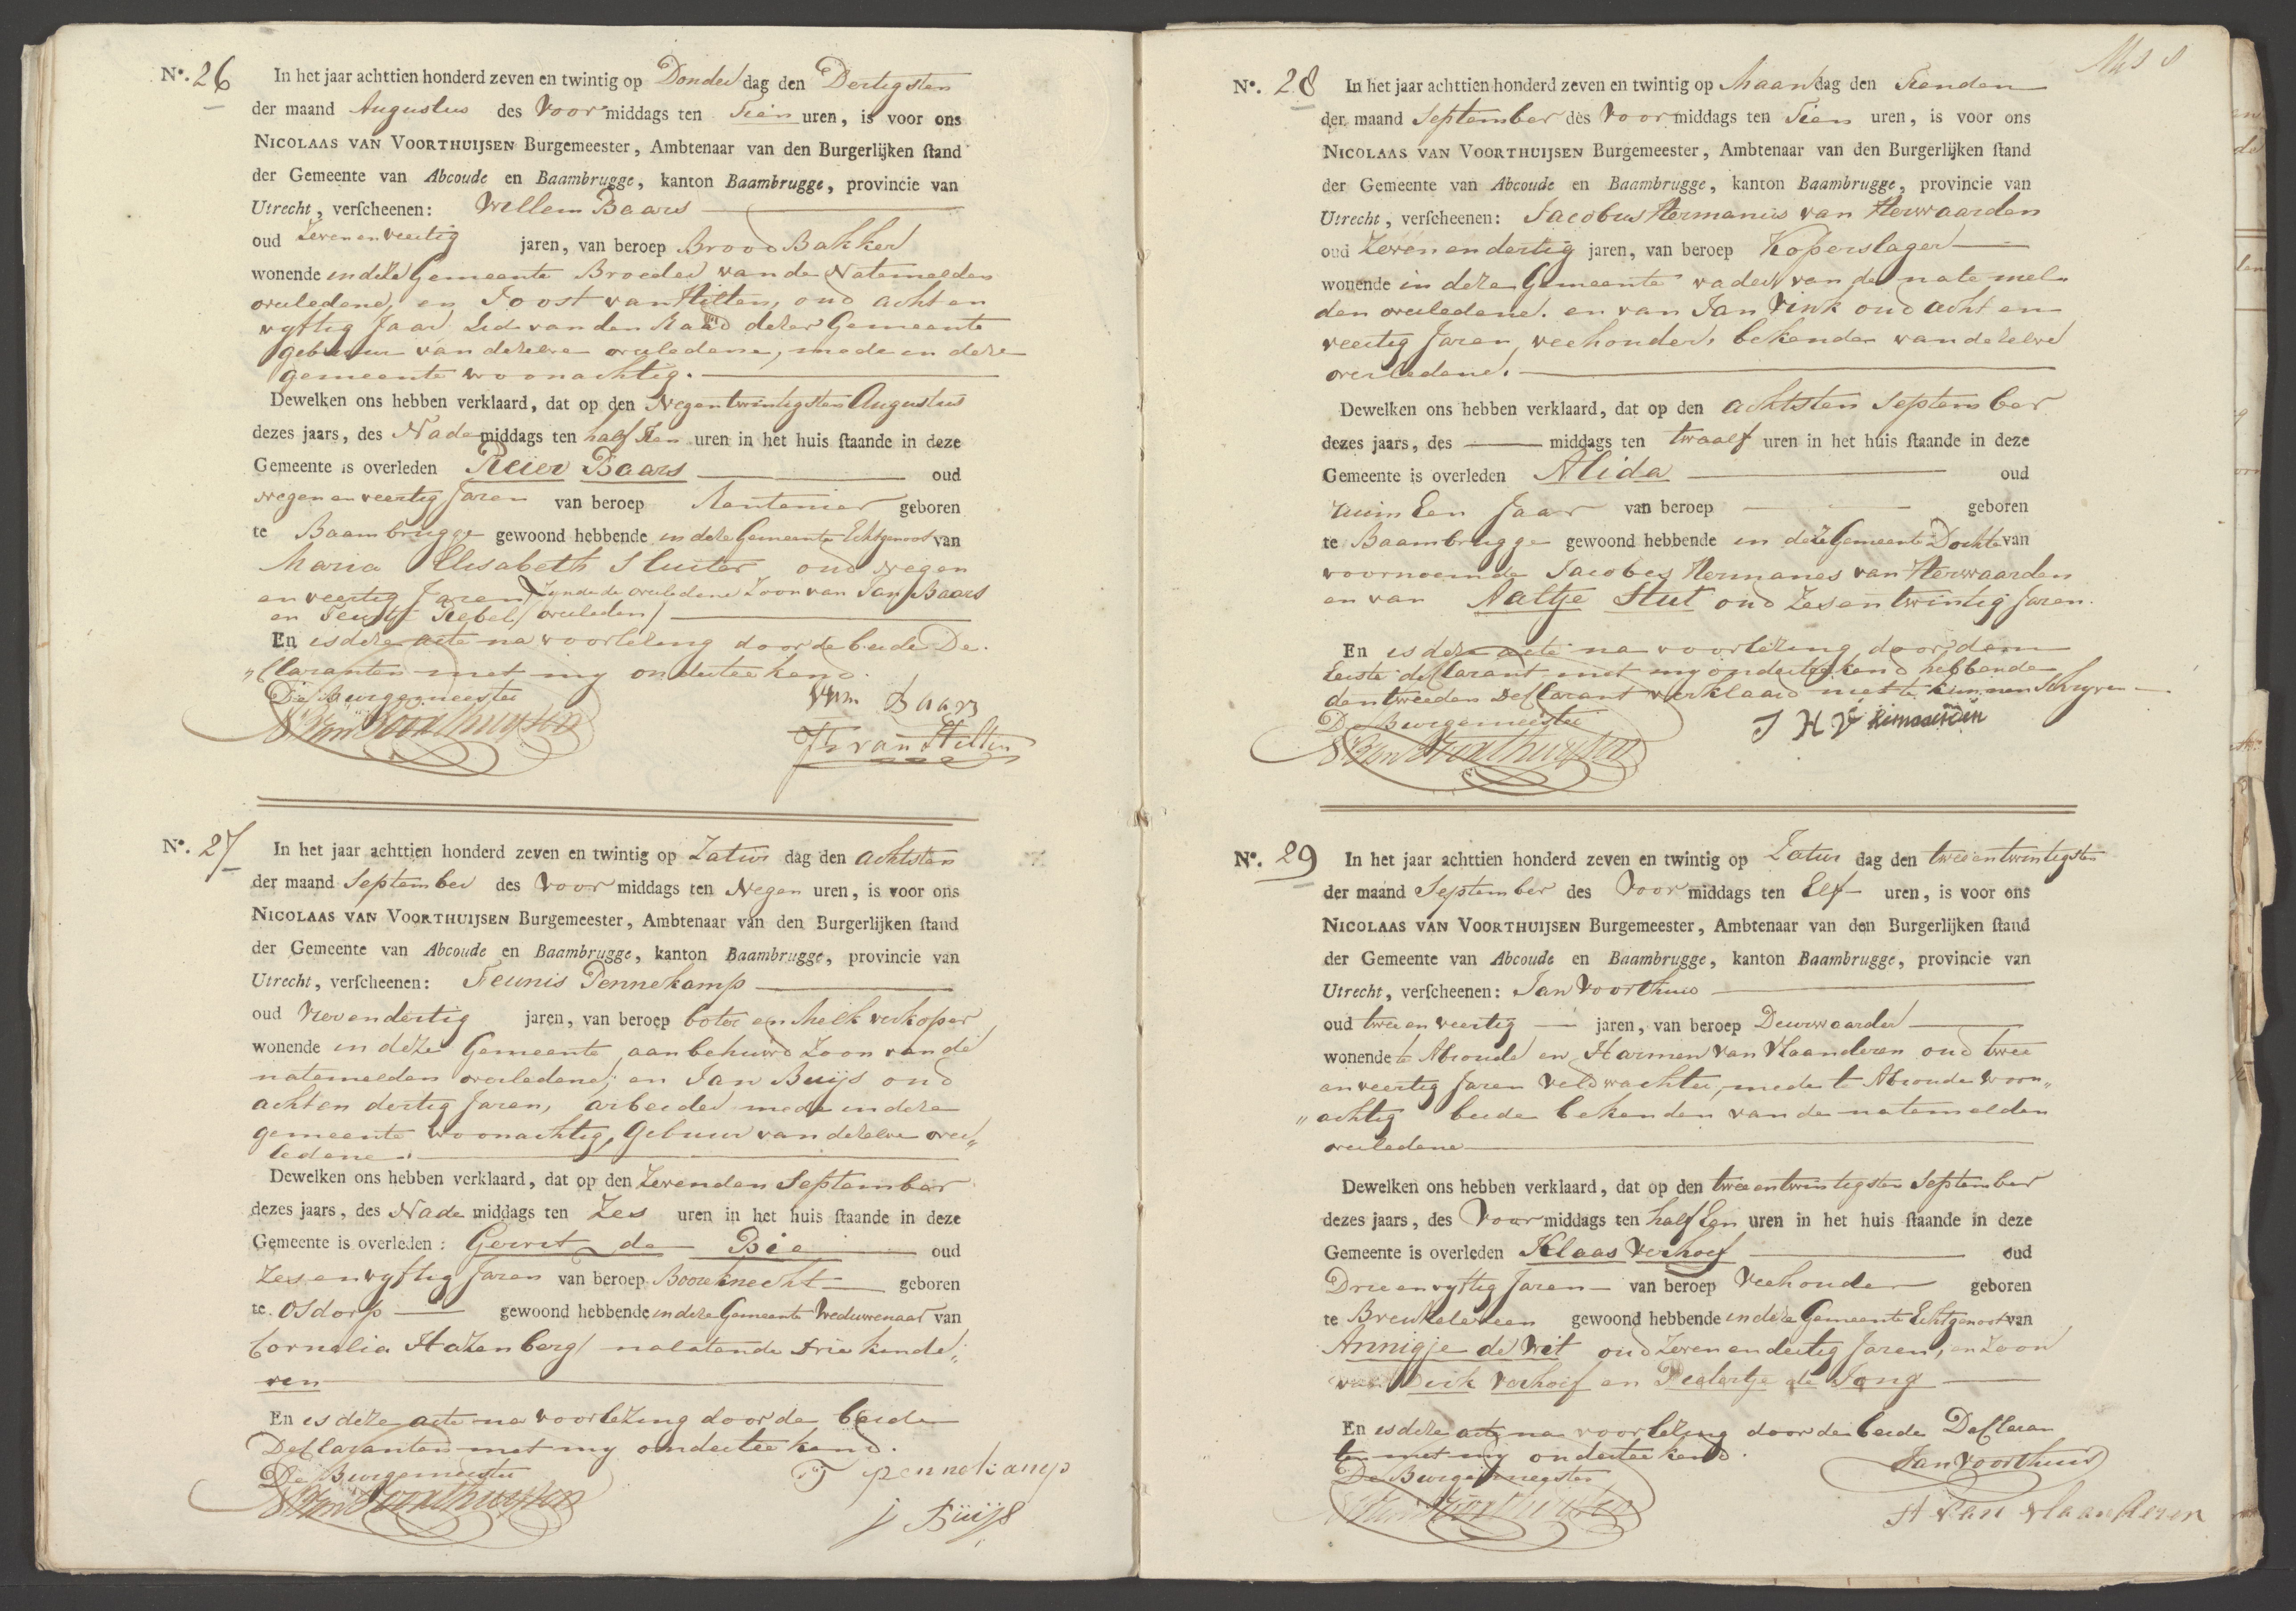 No. 26 In het jaar achttien honderd zeven en twintig op Donder dag den Dertigsten
der maand Augustus des Voor middags ten Tien uren, is voor ons
NICOLAAS VAN VOORTHUIJSEN Burgemeester, Ambtenaar van den Burgerlijken stand
der Gemeente van Abcoude en Baambrugge, kanton Baambrugge, provincie van
Utrecht, verscheenen: Willem Baars
oud Zeven en veertig jaren, van beroep Brood Bakker
wonende in deze Gemeente Broeder van de Natemelden
overledene, en Joost van Hilten, oud acht en
vyftig Jaar Lid van den Raad dezer Gemeente
gebuur van dezelve overledene, mede in deze
gemeente woonachtig.
Dewelken ons hebben verklaard, dat op den Negentwintigsten Augustus
dezes jaars, des Nade middags ten half Tien uren in het huis staande in deze
Gemeente is overleden Reijer Baars oud
negen en veertig Jaren van beroep Rentenier geboren
te Baambrugge gewoond hebbende in deze Gemeente Echtgenoot van
Maria Elisabeth Sluiter oud negen
en veertig Jaren, Zynde de overledene Zoon van Jan Baars
en Teuntje Rebel / overleden /
En is deze acte na voorlezing door de beide De„
„claranten met my onderteekend.
De Burgemeester
N Van Voorthuijsen
Wm Baars
Js van Hilten
No. 27 In het jaar achttien honderd zeven en twintig op Zatur dag den achtsten
der maand September des Voor middags ten Negen uren, is voor ons
NICOLAAS VAN VOORTHUIJSEN Burgemeester, Ambtenaar van den Burgerlijken stand
der Gemeente van Abcoude en Baambrugge, kanton Baambrugge, provincie van
Utrecht, verscheenen: Teunis Pennekamp
oud Vierendertig jaren, van beroep boter en Melk verkoper
wonende in deze Gemeente aanbehuwd Zoon van de
natemelden overledene; en Jan Buijs oud
acht en dertig Jaren, arbeider mede in deze
gemeente woonachtig, Gebuur van dezelve over„
ledene.
Dewelken ons hebben verklaard, dat op den Zevenden September
dezes jaars, des Nade middags ten Zes uren in het huis staande in deze
Gemeente is overleden: Gerrit de Bie oud
Zes en vyftig Jaren van beroep Boereknecht geboren
te Osdorp gewoond hebbende in deze Gemeente Weduwenaar van
Cornelia Hazenberg / nalatende drie kinde„
ren
En is deze acte na voorlezing door de beide
Declaranten met my onderteekend.
De Burgemeester
N Van Voorthuijsen
T pennekamp
J Buijs
No. 28 In het jaar achttien honderd zeven en twintig op Maan dag den Tienden
der maand September des Voor middags ten Tien uren, is voor ons
NICOLAAS VAN VOORTHUIJSEN Burgemeester, Ambtenaar van den Burgerlijken stand
der Gemeente van Abcoude en Baambrugge, kanton Baambrugge, provincie van
Utrecht, verscheenen: Jacobus Hermanus van Herwaarden
oud Zeven en dertig jaren, van beroep Koperslager
wonende in deze Gemeente vader van de nate mel„
den overledene. en van Jan Vink oud acht en
veertig Jaren, veehouder, bekende van dezelve
overledene.
Dewelken ons hebben verklaard, dat op den achtsten September
dezes jaars, des middags ten twaalf uren in het huis staande in deze
Gemeente is overleden Alida oud
ruim Een Jaar van beroep geboren
te Baambrugge gewoond hebbende in deze Gemeente Dochter van
voornoemde Jacobus Hermanus van Herwaarden
en van Aaltje Stut oud Zes en twintig Jaren.
En is deze acte na voorlezing door dem
Eerste declarant met my onderteekend hebbende
den tweeden Declarant verklaard niet te kunnen Schryven
De Burgemeester
N Van Voorthuijsen
J H V Herwaarden
No. 29 In het jaar achttien honderd zeven en twintig op Zatur dag den tweeentwintigsten
der maand September des Voor middags ten Elf uren, is voor ons
NICOLAAS VAN VOORTHUIJSEN Burgemeester, Ambtenaar van den Burgerlijken stand
der Gemeente van Abcoude en Baambrugge, kanton Baambrugge, provincie van
Utrecht, verscheenen: Jan Voorthuis
oud twee en veertig jaren, van beroep Deurwaarder
wonende te Abcoude en Harmen van Vlaanderen oud twee
en veertig Jaren Veldwachter, mede te Abcoude woon„
„achtig beide bekenden van de natemelden
overledene
Dewelken ons hebben verklaard, dat op den tweeentwintigsten September
dezes jaars, des Voor middags ten half Een uren in het huis staande in deze
Gemeente is overleden Klaas Verhoef oud
Drie en vyftig Jaren van beroep Veehouder geboren
te Breukeleveen gewoond hebbende in deze Gemeente Echtgenoot van
Annigje de Wit oud Zeven en dertig Jaren, en Zoon
van Dirk Verhoef en Pietertje de Jong
En is deze acte na voorlezing door de beide Declaran
ten met my onderteekend.
De Burgemeester
N Van Voorthuijsen
Jan Voorthuis
H van Vlaanderen